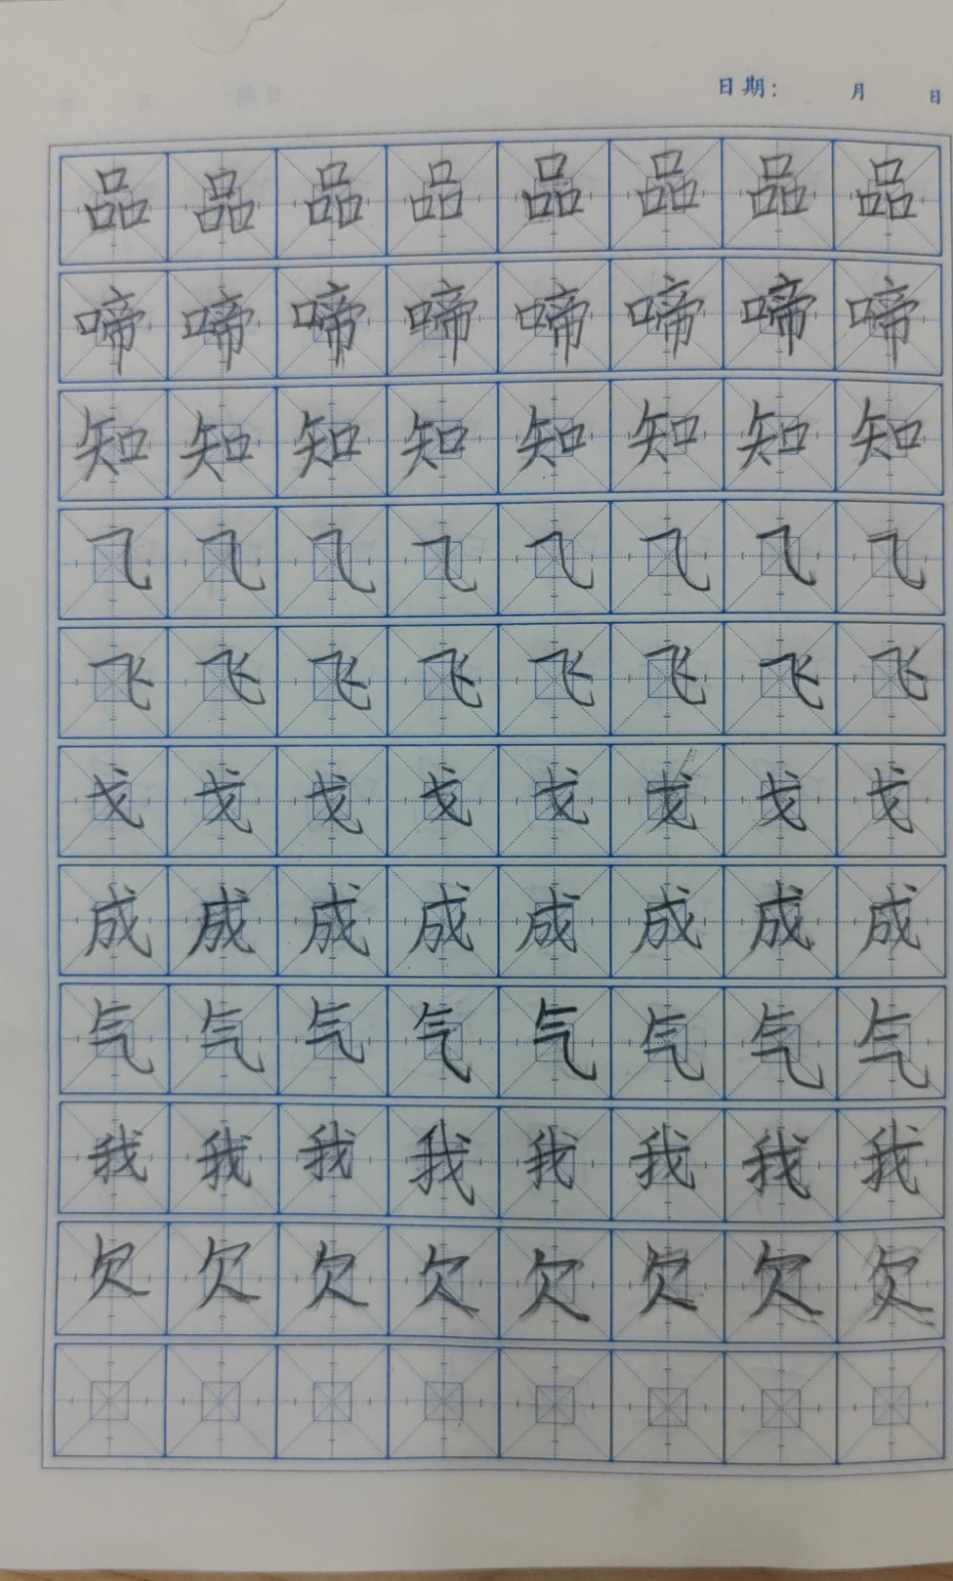 日期： 月 日
品品品品品品品品
啼啼啼啼啼啼啼啼
知知知知知知知知
⺄⺄⺄⺄⺄⺄⺄⺄
飞飞飞飞飞飞飞飞
戈戈戈戈戈戈戈戈
成成成成成成成成
气气气气气气气气
我我我我我我我我
欠欠欠欠欠欠欠欠